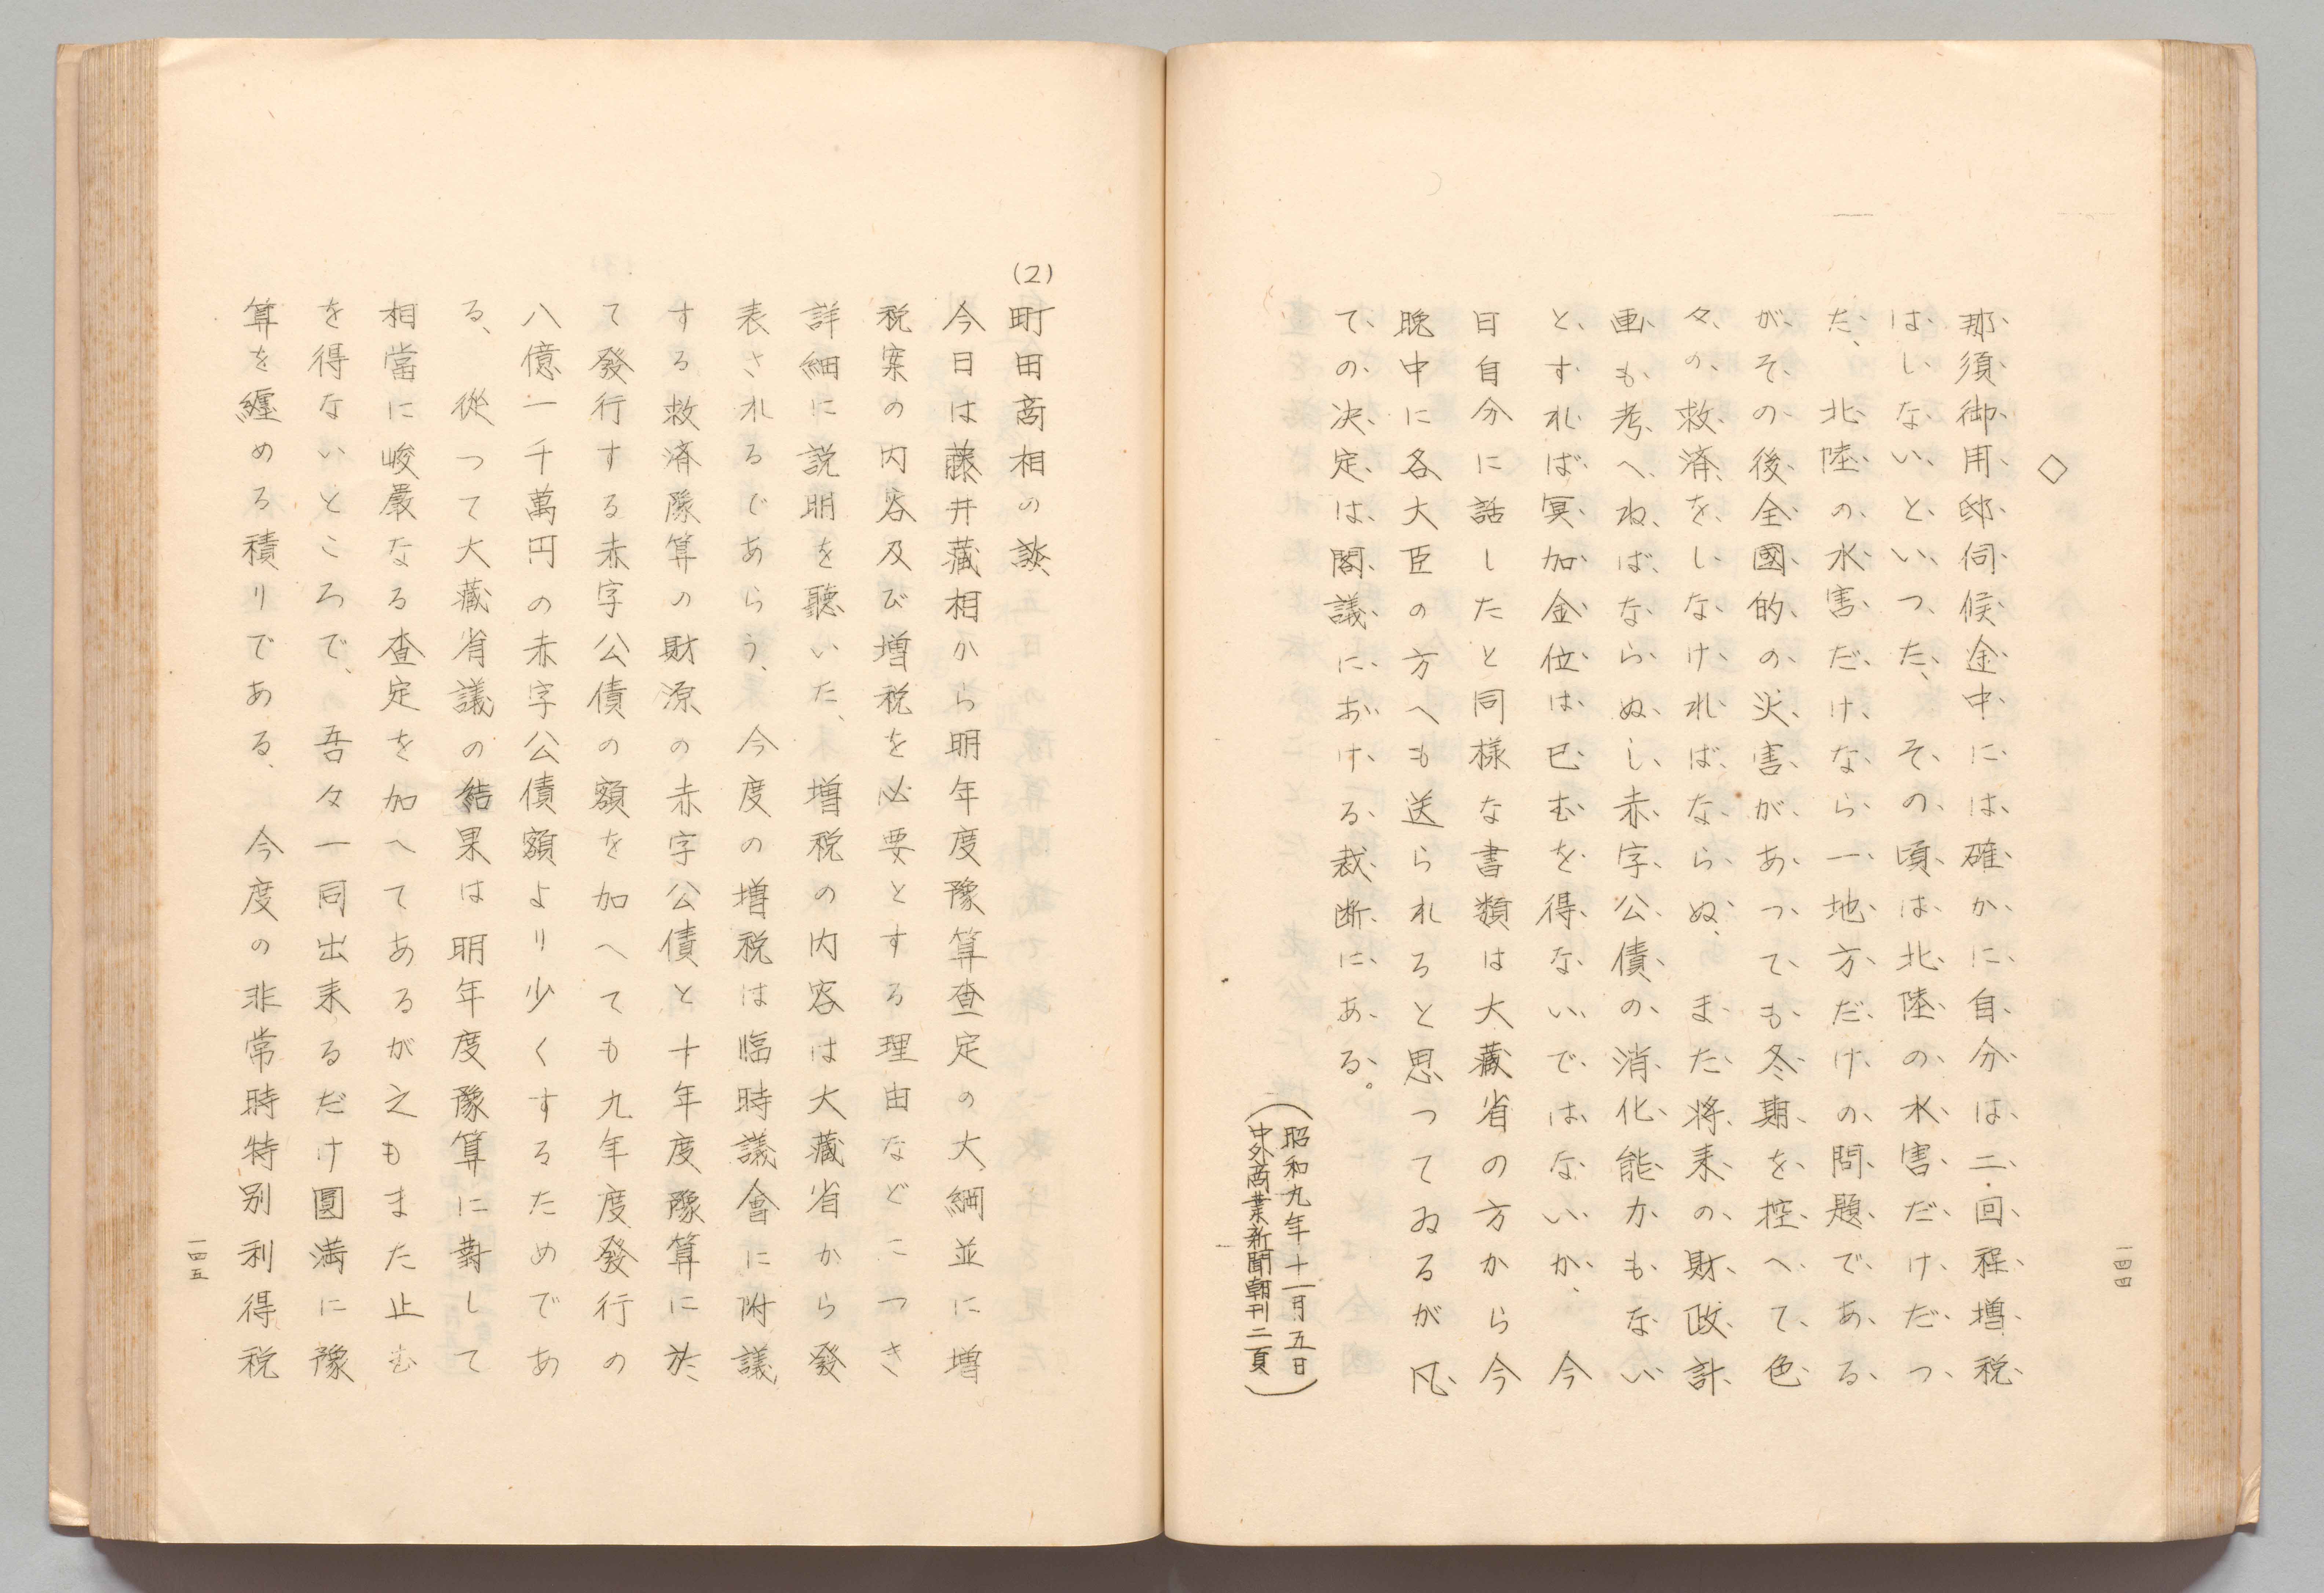 ◇
那須御用邸伺候途中には確かに自分は二回程増税
はしないといつた、その頃は北陸の水害だけだつ
た、北陸の水害だけなら一地方だけの問題である
がその後全國的の災害があつても冬期を控へて色
々の救済をしなければならぬ、また将来の財政計
画も考へねばならぬし赤字公債の消化能力もない
とすれば冥加金位は已むを得ないではないか、今
日自分に話したと同様な書類は大藏省の方から今
晩中に各大臣の方へも送られると思つてゐるが凡
ての決定は閣議における裁断にある。
(昭和九年十一月五日
中外商業新聞朝刊二頁)
一四四
(2)
町田商相の談
今日は藤井藏相から明年度豫算査定の大綱並に増
税案の内容及び増税を必要とする理由などにつき
詳細に説明を聽いた、増税の内容は大藏省から發
表されるであらう、今度の増税は臨時議會に附議
する救済豫算の財源の赤字公債と十年度豫算に於
て發行する赤字公債の額を加へても九年度發行の
八億一千萬円の赤字公債額より少くするためであ
る、従つて大藏省議の結果は明年度豫算に對して
相當に峻嚴なる査定を加へてあるが之もまた止む
を得ないところで、吾々一同出来るだけ圓満に豫
算を纒める積りである、今度の非常時特別利得税
一四五